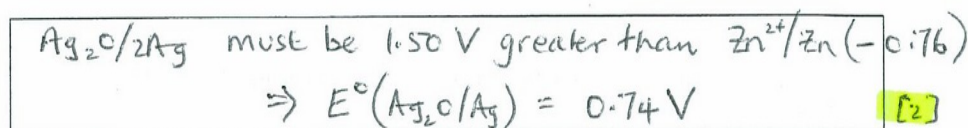 Ag₂O/2Ag must be 1.50 V greater than Zn²⁺/Zn (-0.76)
⇒ E°(Ag₂O/Ag) = 0.74 V [2]